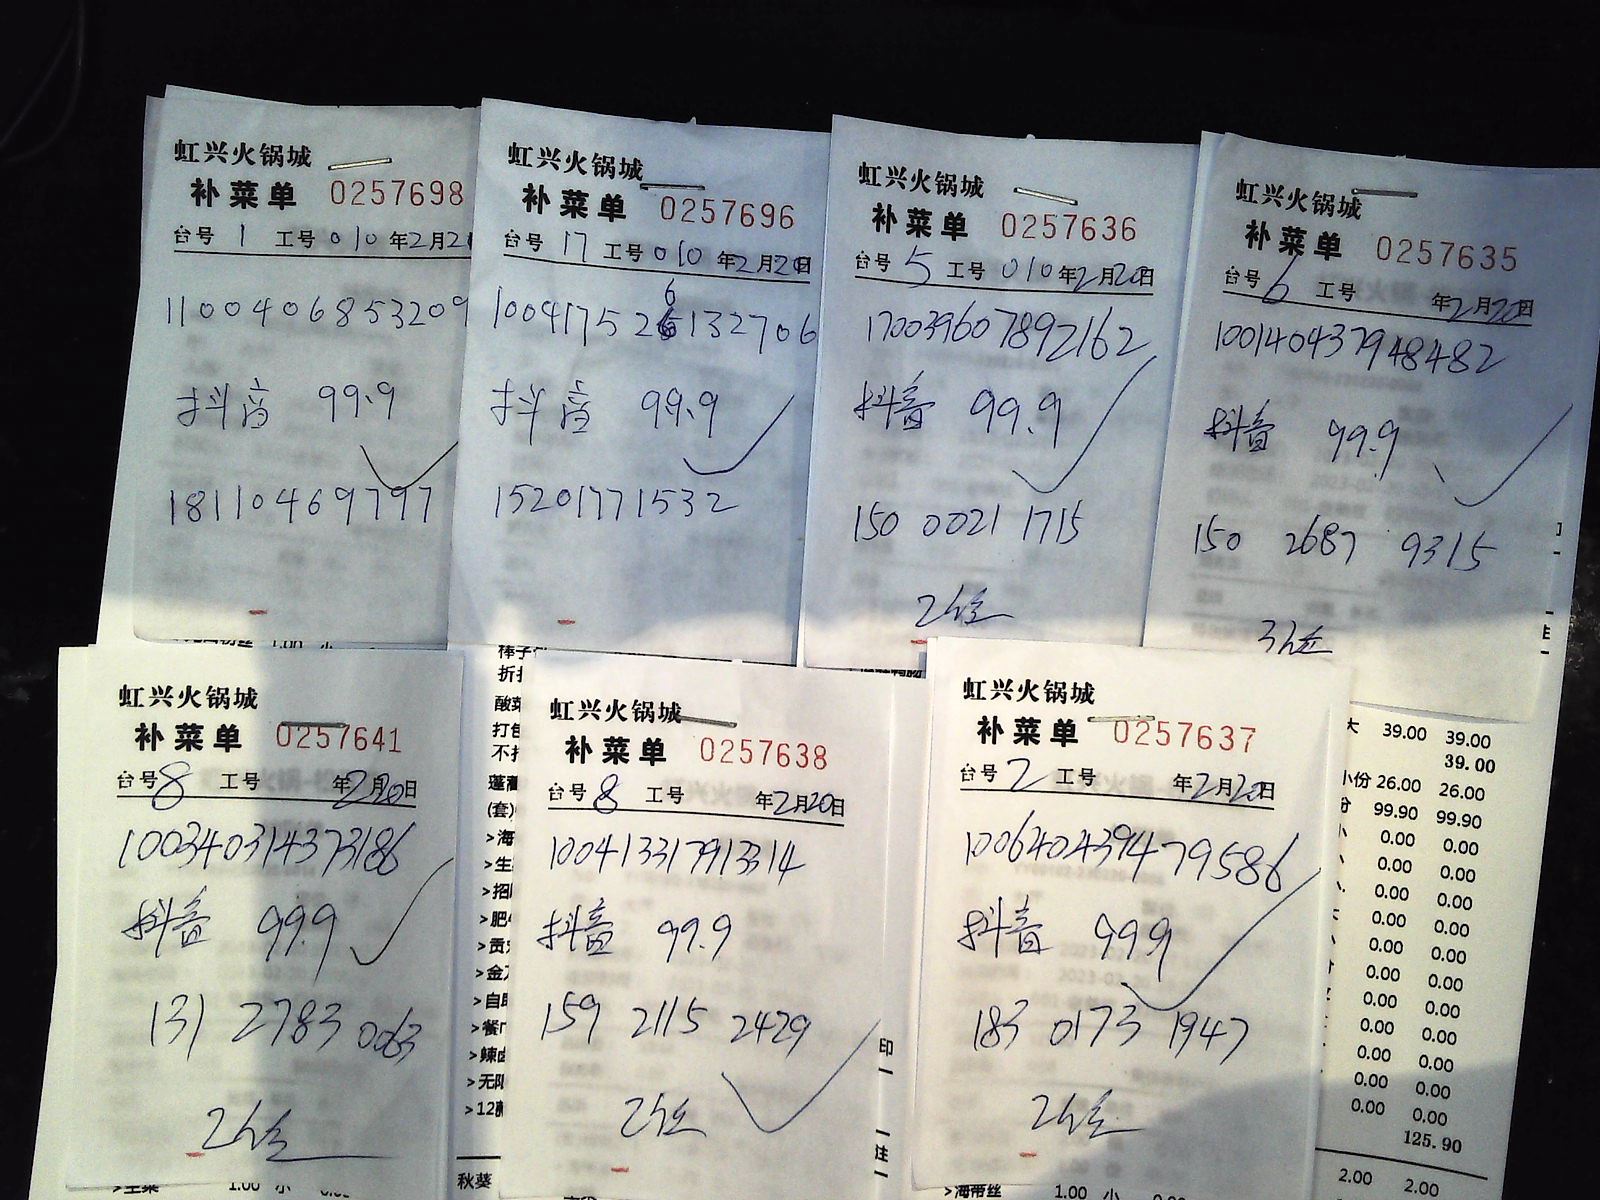 虹兴火锅城
补菜单 0257698
台号 1 工号 010 年2月2
1100406853209
抖音 99.9
18110469797
虹兴火锅城
补菜单 0257696
台号 17 工号 010 年2月20日
6
抖音 99.9
15201771532
虹兴火锅城
补菜单 0257636
台号 5 工号 010 年2月20日
170039607892162
抖音 99.9
150 0021 1715
虹兴火锅城
补菜单 0257635
台号 6 工号 年2月20日
100140437948482
抖音 99.9
150 2687 9315
虹兴火锅城
补菜单 0257641
台号 8 工号 年2月20日
100340314373186
抖音 99.9
131 2783 0063
虹兴火锅城
补菜单 0257638
台号 8 工号 年2月20日
100413317913314
抖音 99.9
159 2115 2429
虹兴火锅城
补菜单 0257637
台号 2 工号 年2月20日
1006404394479586
抖音 99.9
183 0173 1947
棒子
折
酸菜
打包
不
蓬蒿
(套)
>海
>生
>招
>肥
>贡
>金
>自
>餐
>辣
>无限
>12
秋葵
印
注
大 39.00 39.00
39.00
小份 26.00 26.00
份 99.90 99.90
0.00 0.00
0.00 0.00
0.00 0.00
0.00 0.00
0.00 0.00
0.00 0.00
0.00 0.00
0.00 0.00
0.00 0.00
0.00 0.00
0.00 0.00
125.90
2.00 2.00
>生菜 1.00 小
>海带丝 1.00 小 0.00